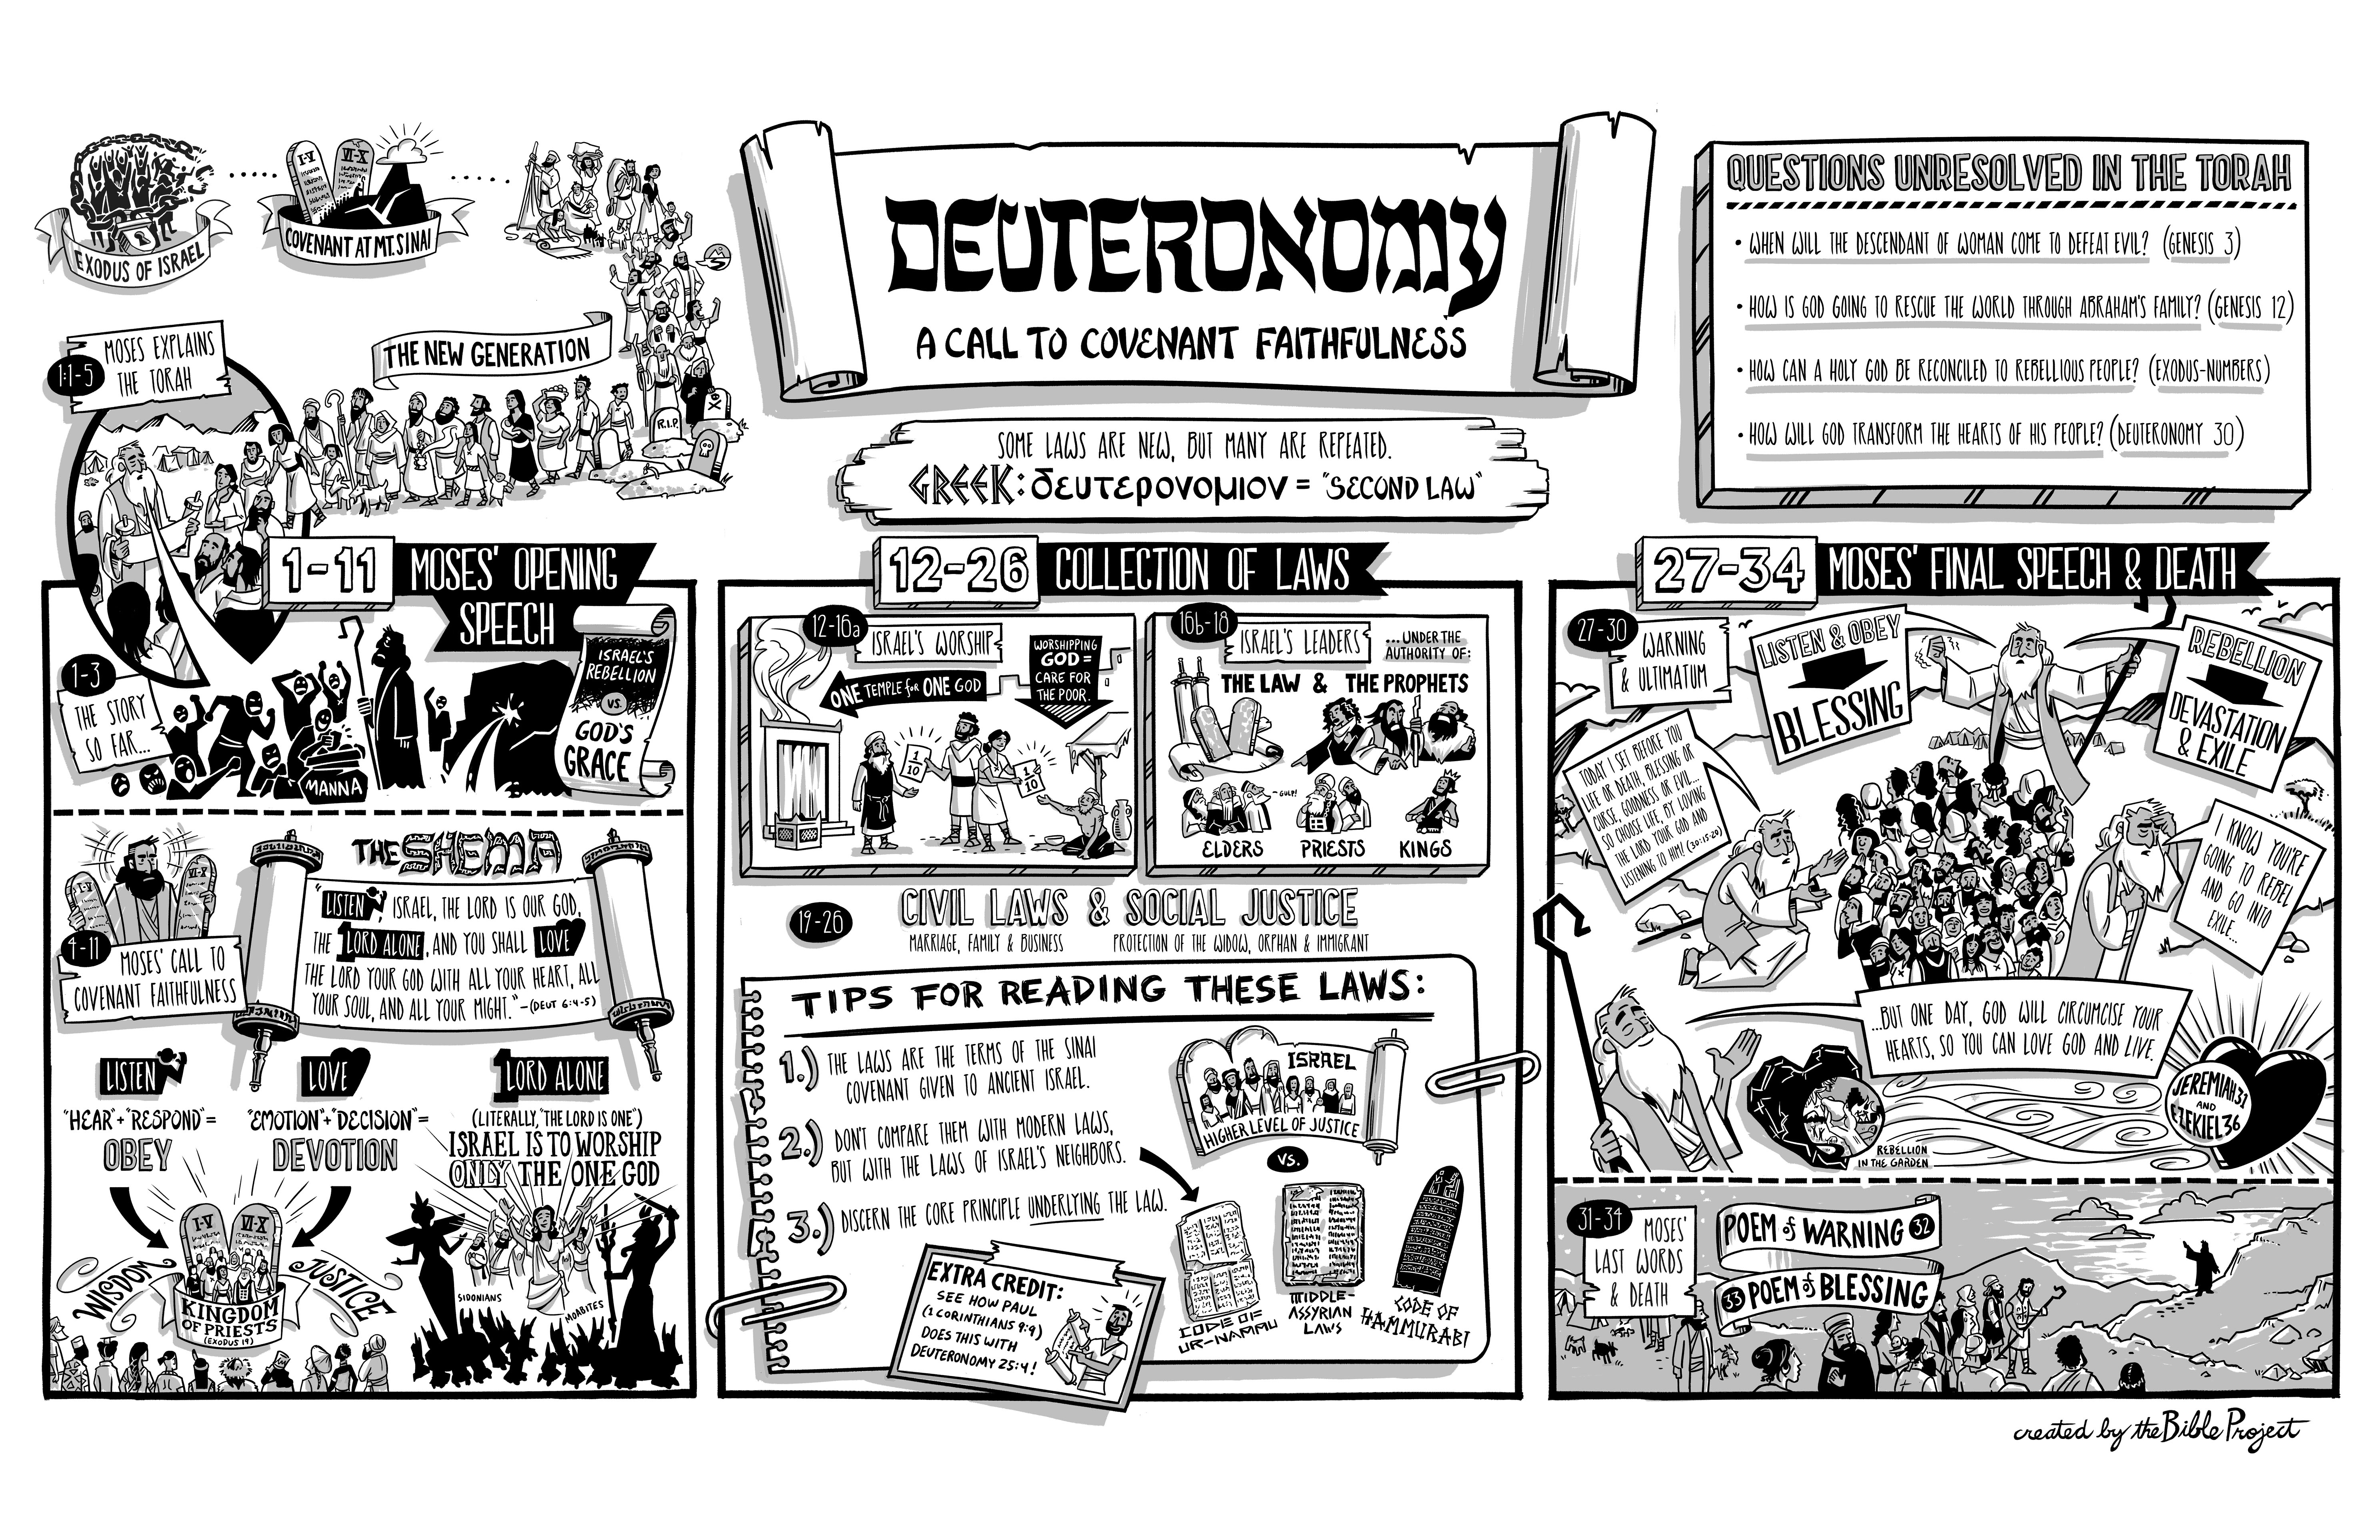 EXODUS OF ISRAEL
I-V
VI-X
COVENANT AT MT. SINAI
THE NEW GENERATION
R.I.P.
1:1-5
MOSES EXPLAINS
THE TORAH
DEUTERONOMY
A CALL TO COVENANT FAITHFULNESS
SOME LAWS ARE NEW, BUT MANY ARE REPEATED.
GREEK: δευτερονομιον = "SECOND LAW"
QUESTIONS UNRESOLVED IN THE TORAH
• WHEN WILL THE DESCENDANT OF WOMAN COME TO DEFEAT EVIL? (GENESIS 3)
• HOW IS GOD GOING TO RESCUE THE WORLD THROUGH ABRAHAM'S FAMILY? (GENESIS 12)
• HOW CAN A HOLY GOD BE RECONCILED TO REBELLIOUS PEOPLE? (EXODUS-NUMBERS)
• HOW WILL GOD TRANSFORM THE HEARTS OF HIS PEOPLE? (DEUTERONOMY 30)
1-11 MOSES' OPENING
SPEECH
1-3
THE STORY
SO FAR...
MANNA
ISRAEL'S
REBELLION
VS.
GOD'S
GRACE
I-V
VI-X
4-11
MOSES' CALL TO
COVENANT FAITHFULNESS
THE SHEMA
"LISTEN, ISRAEL, THE LORD IS OUR GOD,
THE 1LORD ALONE, AND YOU SHALL LOVE
THE LORD YOUR GOD WITH ALL YOUR HEART, ALL
YOUR SOUL, AND ALL YOUR MIGHT." -(DEUT 6:4-5)
LISTEN
"HEAR" + "RESPOND" =
OBEY
LOVE
"EMOTION" + "DECISION" =
DEVOTION
1LORD ALONE
(LITERALLY, "THE LORD IS ONE")
ISRAEL IS TO WORSHIP
ONLY THE ONE GOD
WISDOM
I-V
VI-X
JUSTICE
KINGDOM
OF PRIESTS
(EXODUS 19)
SIDONIANS
MOABITES
12-26 COLLECTION OF LAWS
12-16a
ISRAEL'S WORSHIP
ONE TEMPLE for ONE GOD
WORSHIPPING
GOD =
CARE FOR
THE POOR.
1
10
1
10
16b-18
ISRAEL'S LEADERS
...UNDER THE
AUTHORITY OF:
THE LAW & THE PROPHETS
-GULP!
ELDERS
PRIESTS
KINGS
19-26
CIVIL LAWS & SOCIAL JUSTICE
MARRIAGE, FAMILY & BUSINESS
PROTECTION OF THE WIDOW, ORPHAN & IMMIGRANT
TIPS FOR READING THESE LAWS:
1.) THE LAWS ARE THE TERMS OF THE SINAI
COVENANT GIVEN TO ANCIENT ISRAEL.
2.) DON'T COMPARE THEM WITH MODERN LAWS,
BUT WITH THE LAWS OF ISRAEL'S NEIGHBORS.
3.) DISCERN THE CORE PRINCIPLE UNDERLYING THE LAW.
ISRAEL
HIGHER LEVEL OF JUSTICE
VS.
CODE OF
UR-NAMMU
MIDDLE-
ASSYRIAN
LAWS
CODE OF
HAMMURABI
EXTRA CREDIT:
SEE HOW PAUL
(1 CORINTHIANS 9:9)
DOES THIS WITH
DEUTERONOMY 25:4!
27-34 MOSES' FINAL SPEECH & DEATH
27-30
WARNING
& ULTIMATUM
LISTEN & OBEY
BLESSING
REBELLION
DEVASTATION
& EXILE
TODAY I SET BEFORE YOU
LIFE OR DEATH, BLESSING OR
CURSE, GOODNESS OR EVIL...
SO CHOOSE LIFE, BY LOVING
THE LORD YOUR GOD AND
LISTENING TO HIM! (30:15-20)
I KNOW YOU'RE
GOING TO REBEL
AND GO INTO
EXILE...
...BUT ONE DAY, GOD WILL CIRCUMCISE YOUR
HEARTS, SO YOU CAN LOVE GOD AND LIVE.
REBELLION
IN THE GARDEN
JEREMIAH 31
AND
EZEKIEL 36
31-34
MOSES'
LAST WORDS
& DEATH
POEM of WARNING 32
33 POEM of BLESSING
created by the Bible Project